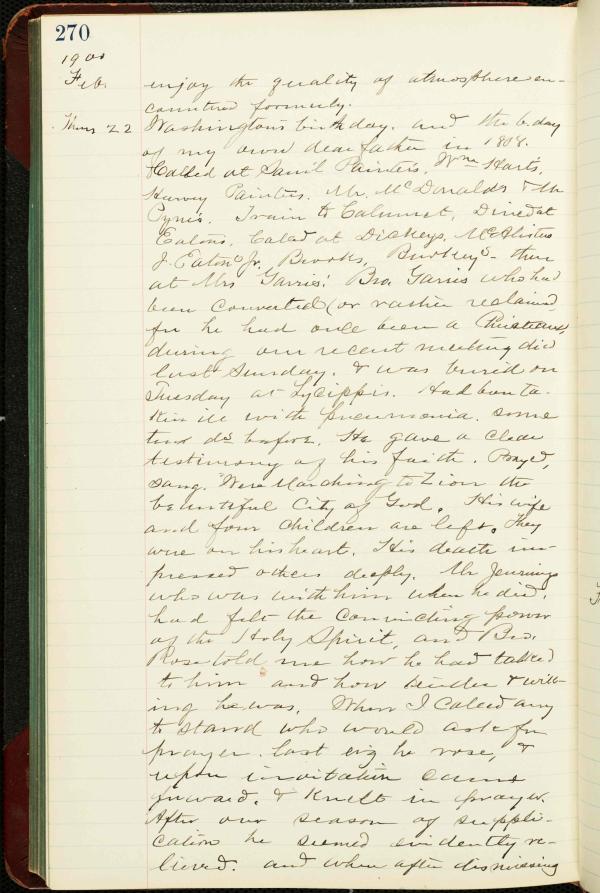 270
1900
Feb. enjoy the quality of atmosphere en-
countered formerly.
Thurs 22 Washington's birthday. and the b. day
of my own dear father in 1808.
Called at Saml Painter's, Wm Harts,
Harvey Painters. Mr. McDonalds & Mr
Cyrus. Train to Calumet, Dined at
Eatons. Caled at Dickeys, McAlisters
J. Eatons Jr. Brooks, then
at Mrs Garris! Bro. Garris who had
been converted (or rather reclaimed,
for he had once been a Christian,
during our recent meeting died
last Sunday. & was buried on
Tuesday at Lycippis. Had been ta-
ken ill with pneumonia. some
ten ds before. He gave a clear
testimony of his faith. Prayed,
sang. "Were Marching to Zion the
beautiful City of God. His wife
and four children are left. They
were on his heart. His death im-
pressed others deeply. Mr Jennings
who was with him when he died,
had felt the convicting power
of the Holy Spirit, and Bro.
Rose told me how he had talked
to him and how tender & will-
ing he was. When I called any
to stand who would ask for
prayer last evg he rose, &
upon invitation came
forward. & knelt in prayer.
After our season of suppli-
cation he seemed evidently re-
lieved. and when after dismissing